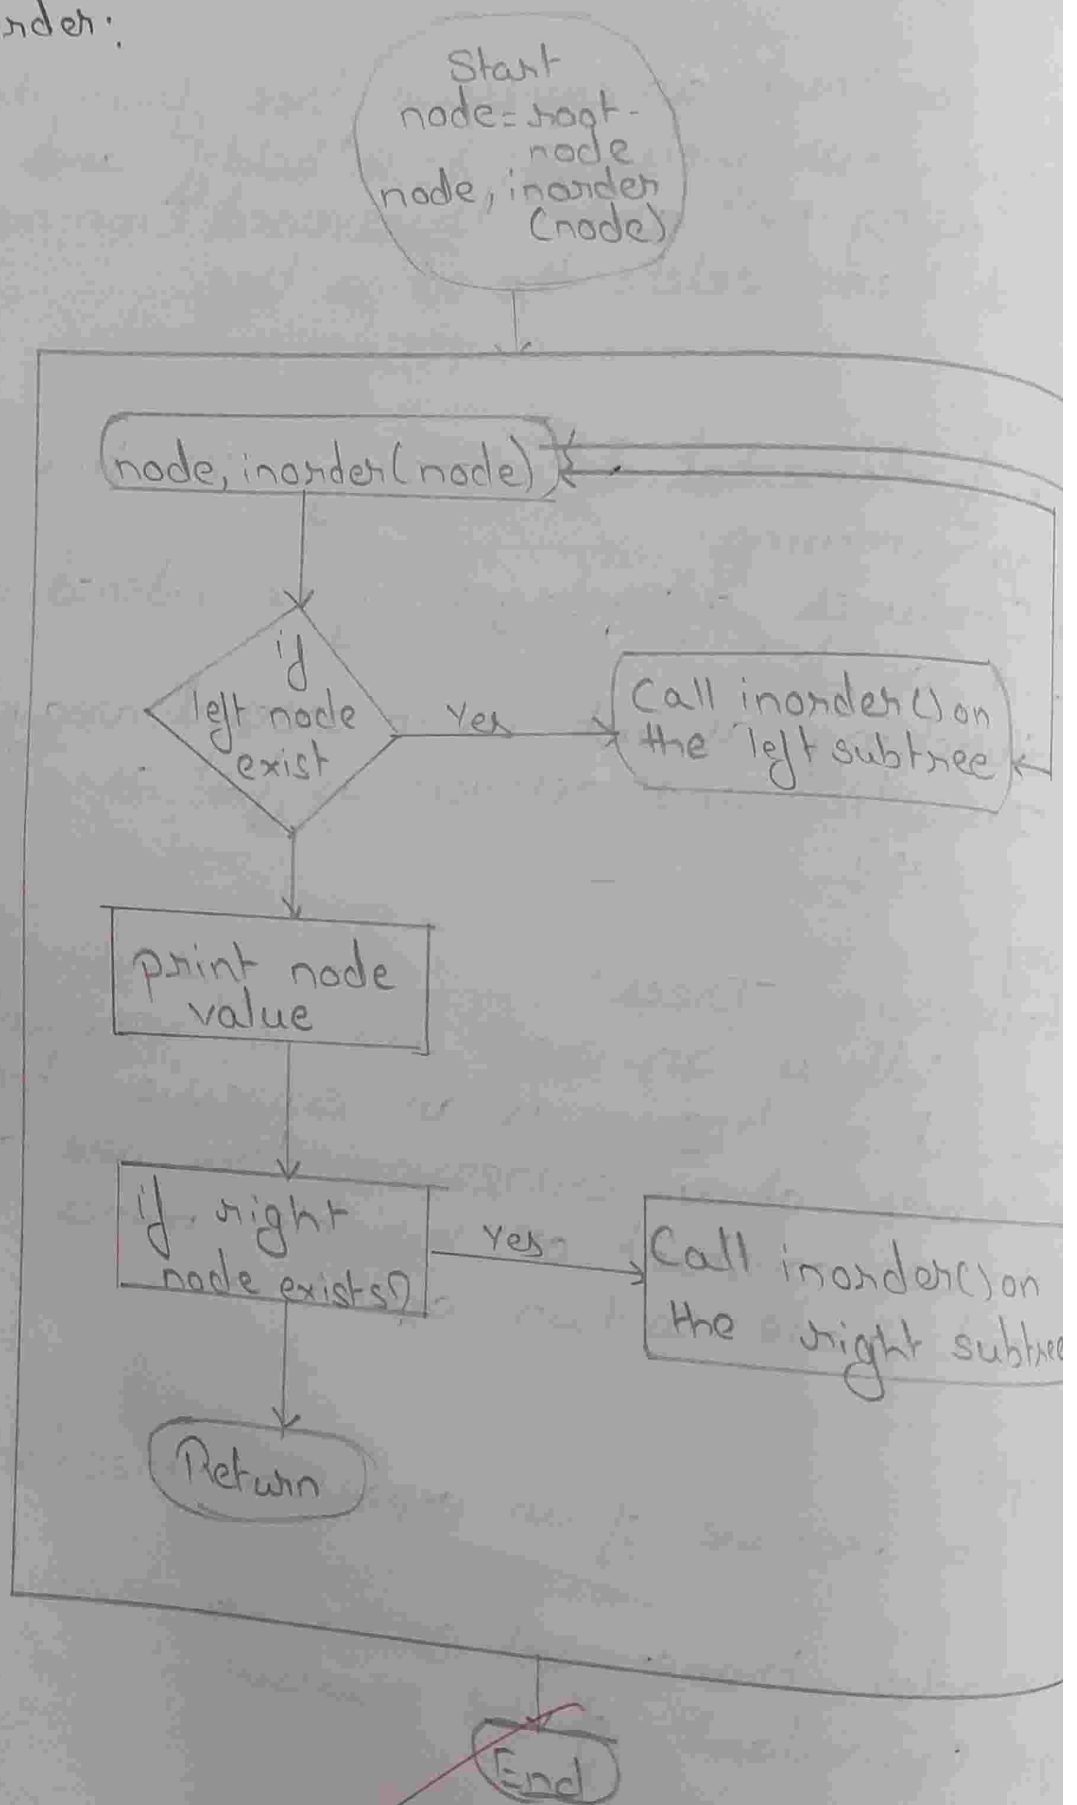 rder:
Start
node=root-
node
node, inorder
(node)
node, inorder(node)
if
left node
exist
Yes
Call inorder() on
the left subtree
print node
value
if right
node exists?
Yes
Call inorder() on
the right subtree
Return
End